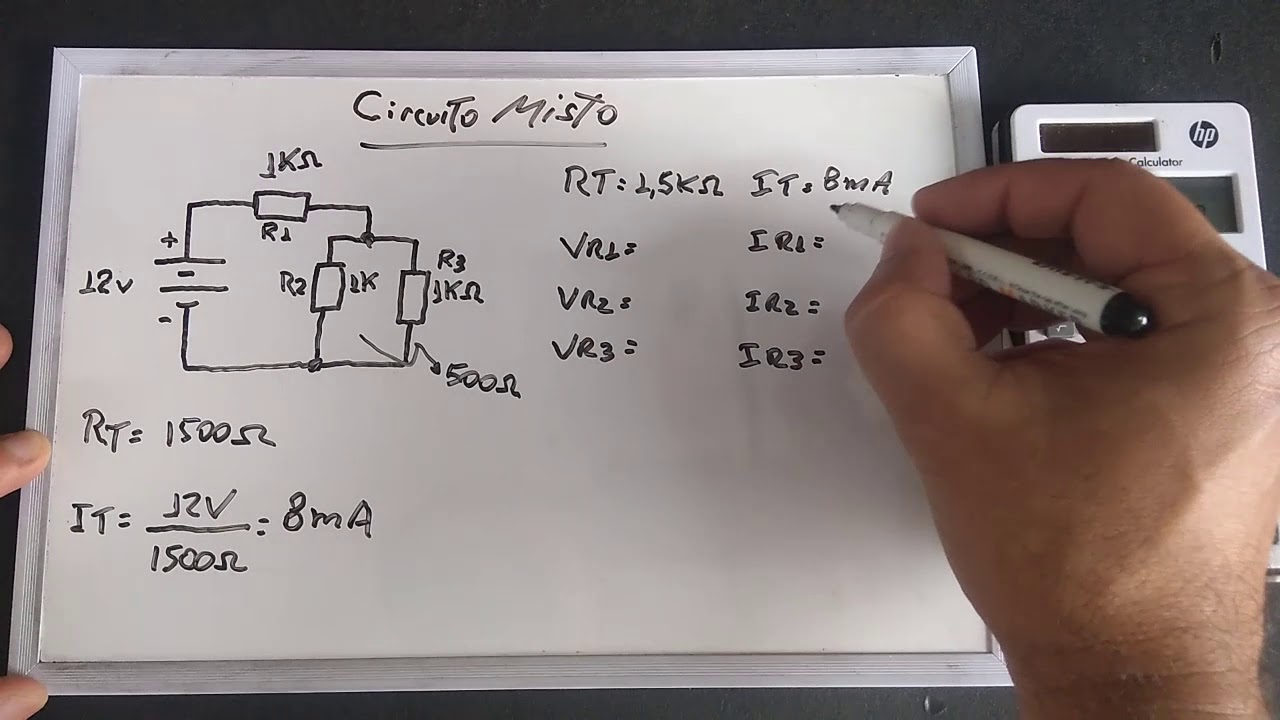 Circuito Misto
1KΩ
R1
+
12v
-
-
R2
1K
R3
1KΩ
500Ω
RT= 1500Ω
IT= 12V
1500Ω
= 8mA
RT= 1,5KΩ IT= 8mA
VR1= IR1=
VR2= IR2=
VR3= IR3=
hp
Calculator